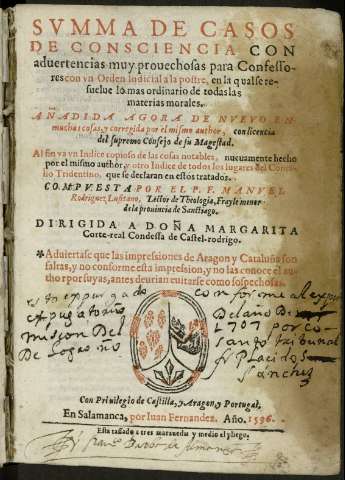 SVMMA DE CASOS
DE CONSCIENCIA CON
aduertencias muy prouechosas para Confesso-
res con vn Orden Iudicial a la postre, en la qual se re-
suelue lo mas ordinario de todas las
materias morales.
AÑADIDA AGORA DE NVEVO EN
muchas cosas, y corregida por el mismo author, con licencia
del supremo Consejo de su Magestad.
Al fin va vn Indice copioso de las cosas notables, nueuamente hecho
por el mismo author, y otro Indice de todos los lugares del Conci-
lio Tridentino, que se declaran en estos tratados.
COMPVESTA POR EL P. F. MANVEL
Rodriguez, Lusitano, Lector de Theologia, Frayle menor
de la prouincia de Sanctiago.
DIRIGIDA A DOÑA MARGARITA
Corte-real Condessa de Castel-rodrigo.
Aduiertase que las impressiones de Aragon y Cataluña son
falsas, y no conforme esta impression, y no las conoce el au-
thor por suyas, antes deurian euitarse como sospechosas.
conforme al
Del año De
1707 por co-
mision Del
sancto tribunal
De Logroño
fr Placido
Sanchez
Con Priuilegio de Castilla, y Aragon, y Portugal,
En Salamanca, por Iuan Fernandez. Año. 1596.
Esta tassado a tres marauedis y medio el pliego.